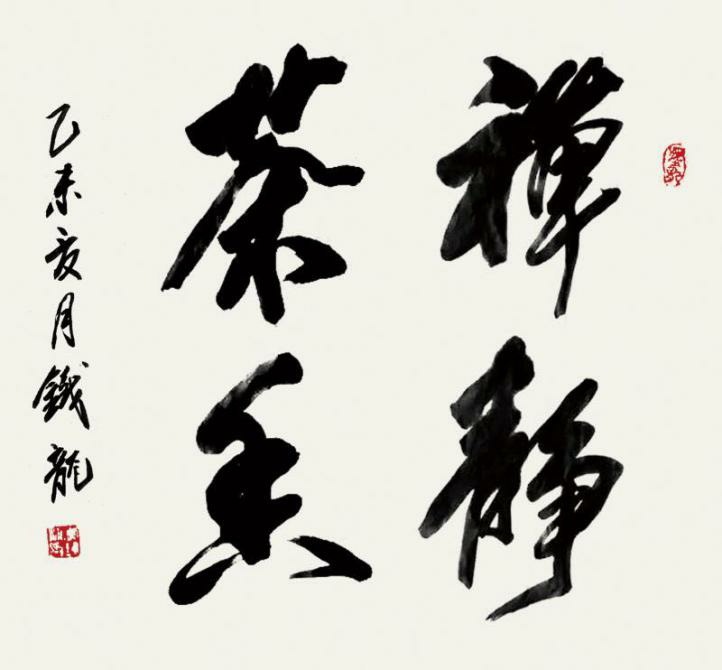 禪靜
茶香
乙未亥月鐵龍